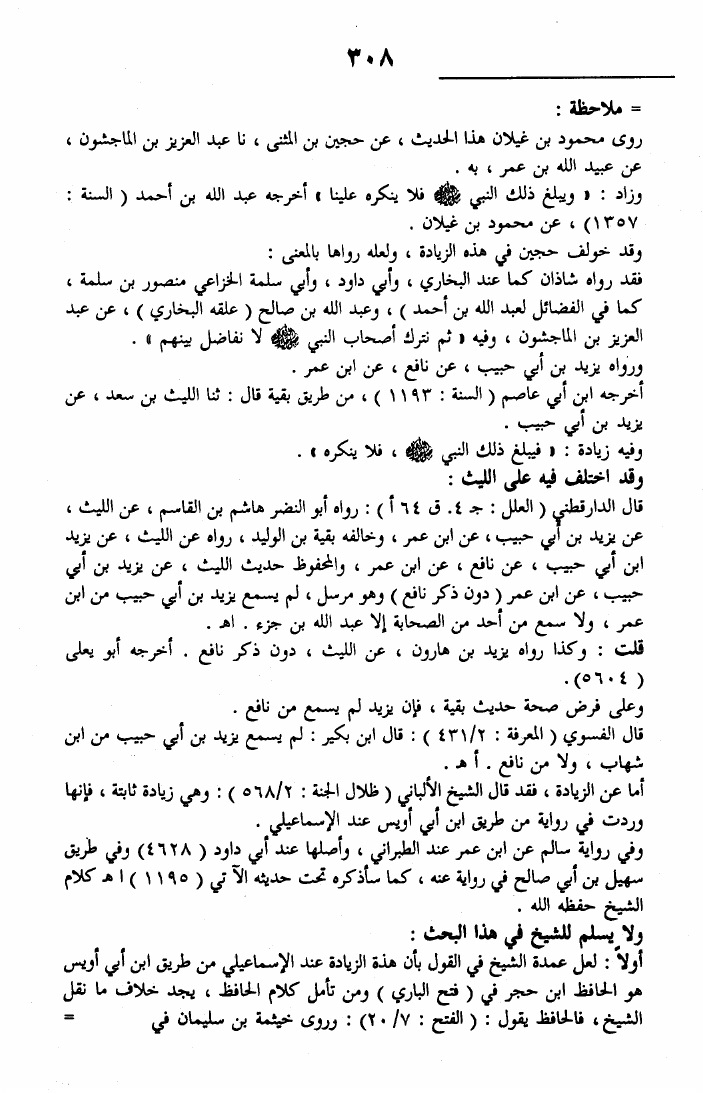 ٣٠٨
= ملاحظة :
روى محمود بن غيلان هذا الحديث ، عن حجين بن المثنى ، نا عبد العزيز بن الماجشون ،
عن عبيد الله بن عمر ، به .
وزاد : « ويبلغ ذلك النبي ﷺ فلا ينكره علينا » أخرجه عبد الله بن أحمد ( السنة :
١٣٥٧) ، عن محمود بن غيلان .
وقد خولف حجين في هذه الزيادة ، ولعله رواها بالمعنى :
فقد رواه شاذان كما عند البخاري ، وأبي داود ، وأبي سلمة الخزاعي منصور بن سلمة ،
كما في الفضائل لعبد الله بن أحمد ) ، وعبد الله بن صالح ( علقه البخاري ) ، عن عبد
العزيز بن الماجشون ، وفيه « ثم نترك أصحاب النبي ﷺ لا نفاضل بينهم » .
ورواه يزيد بن أبي حبيب ، عن نافع ، عن ابن عمر .
أخرجه ابن أبي عاصم ( السنة : ١١٩٣ ) ، من طريق بقية قال : ثنا الليث بن سعد ، عن
يزيد بن أبي حبيب .
وفيه زيادة : « فيبلغ ذلك النبي ﷺ ، فلا ينكره » .
وقد اختلف فيه على الليث :
قال الدارقطني ( العلل : جـ ٤. ق ٦٤ أ ) : رواه أبو النضر هاشم بن القاسم ، عن الليث ،
عن يزيد بن أبي حبيب ، عن ابن عمر ، وخالفه بقية بن الوليد ، رواه عن الليث ، عن يزيد
ابن أبي حبيب ، عن نافع ، عن ابن عمر ، والمحفوظ حديث الليث ، عن يزيد بن أبي
حبيب ، عن ابن عمر ( دون ذكر نافع ) وهو مرسل ، لم يسمع يزيد بن أبي حبيب من ابن
عمر ، ولا سمع من أحد من الصحابة إلا عبد الله بن جزء . اهـ .
قلت : وكذا رواه يزيد بن هارون ، عن الليث ، دون ذكر نافع . أخرجه أبو يعلى
( ٥٦٠٤).
وعلى فرض صحة حديث بقية ، فإن يزيد لم يسمع من نافع .
قال الفسوي ( المعرفة : ٤٣١/٢ ) : قال ابن بكير : لم يسمع يزيد بن أبي حبيب من ابن
شهاب ، ولا من نافع . أ هـ .
أما عن الزيادة ، فقد قال الشيخ الألباني ( ظلال الجنة : ٥٦٨/٢ ) : وهي زيادة ثابتة ، فإنها
وردت في رواية من طريق ابن أبي أويس عند الإسماعيلي .
وفي رواية سالم عن ابن عمر عند الطبراني ، وأصلها عند أبي داود ( ٤٦٢٨) وفي طريق
سهيل بن أبي صالح في رواية عنه ، كما سأذكره تحت حديثه الآتي ( ١١٩٥ ) ا هـ كلام
الشيخ حفظه الله .
ولا يسلم للشيخ في هذا البحث :
أولاً : لعل عمدة الشيخ في القول بأن هذة الزيادة عند الإسماعيلي من طريق ابن أبي أويس
هو الحافظ ابن حجر في ( فتح الباري ) ومن تأمل كلام الحافظ ، يجد خلاف ما نقل
الشيخ ، فالحافظ يقول : ( الفتح : ٢٠/٧) : وروى خيثمة بن سليمان في =